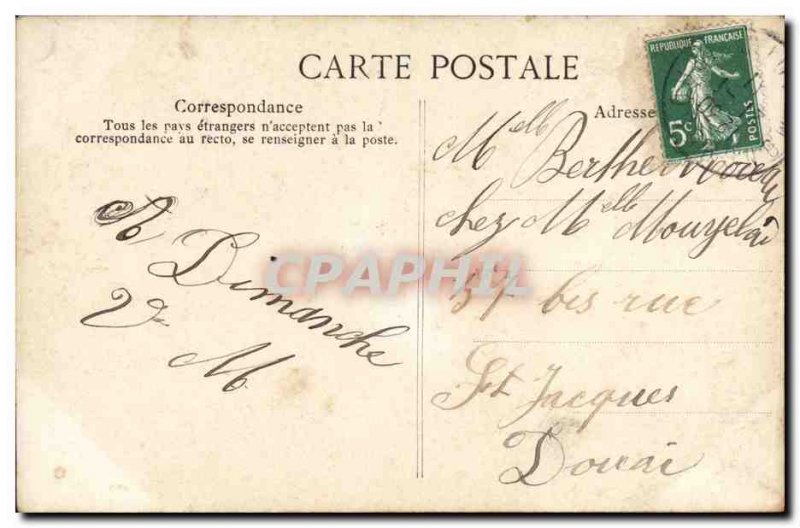 CARTE POSTALE
Correspondance
Tous les pays étrangers n'acceptent pas la
correspondance au recto, se renseigner à la poste.
Adresse
REPUBLIQUE FRANÇAISE
5c
POSTES
A Dimanche
M
Melle Berthe
chez Melle
57 bis rue
St Jacques
Douai
CPAPHIL